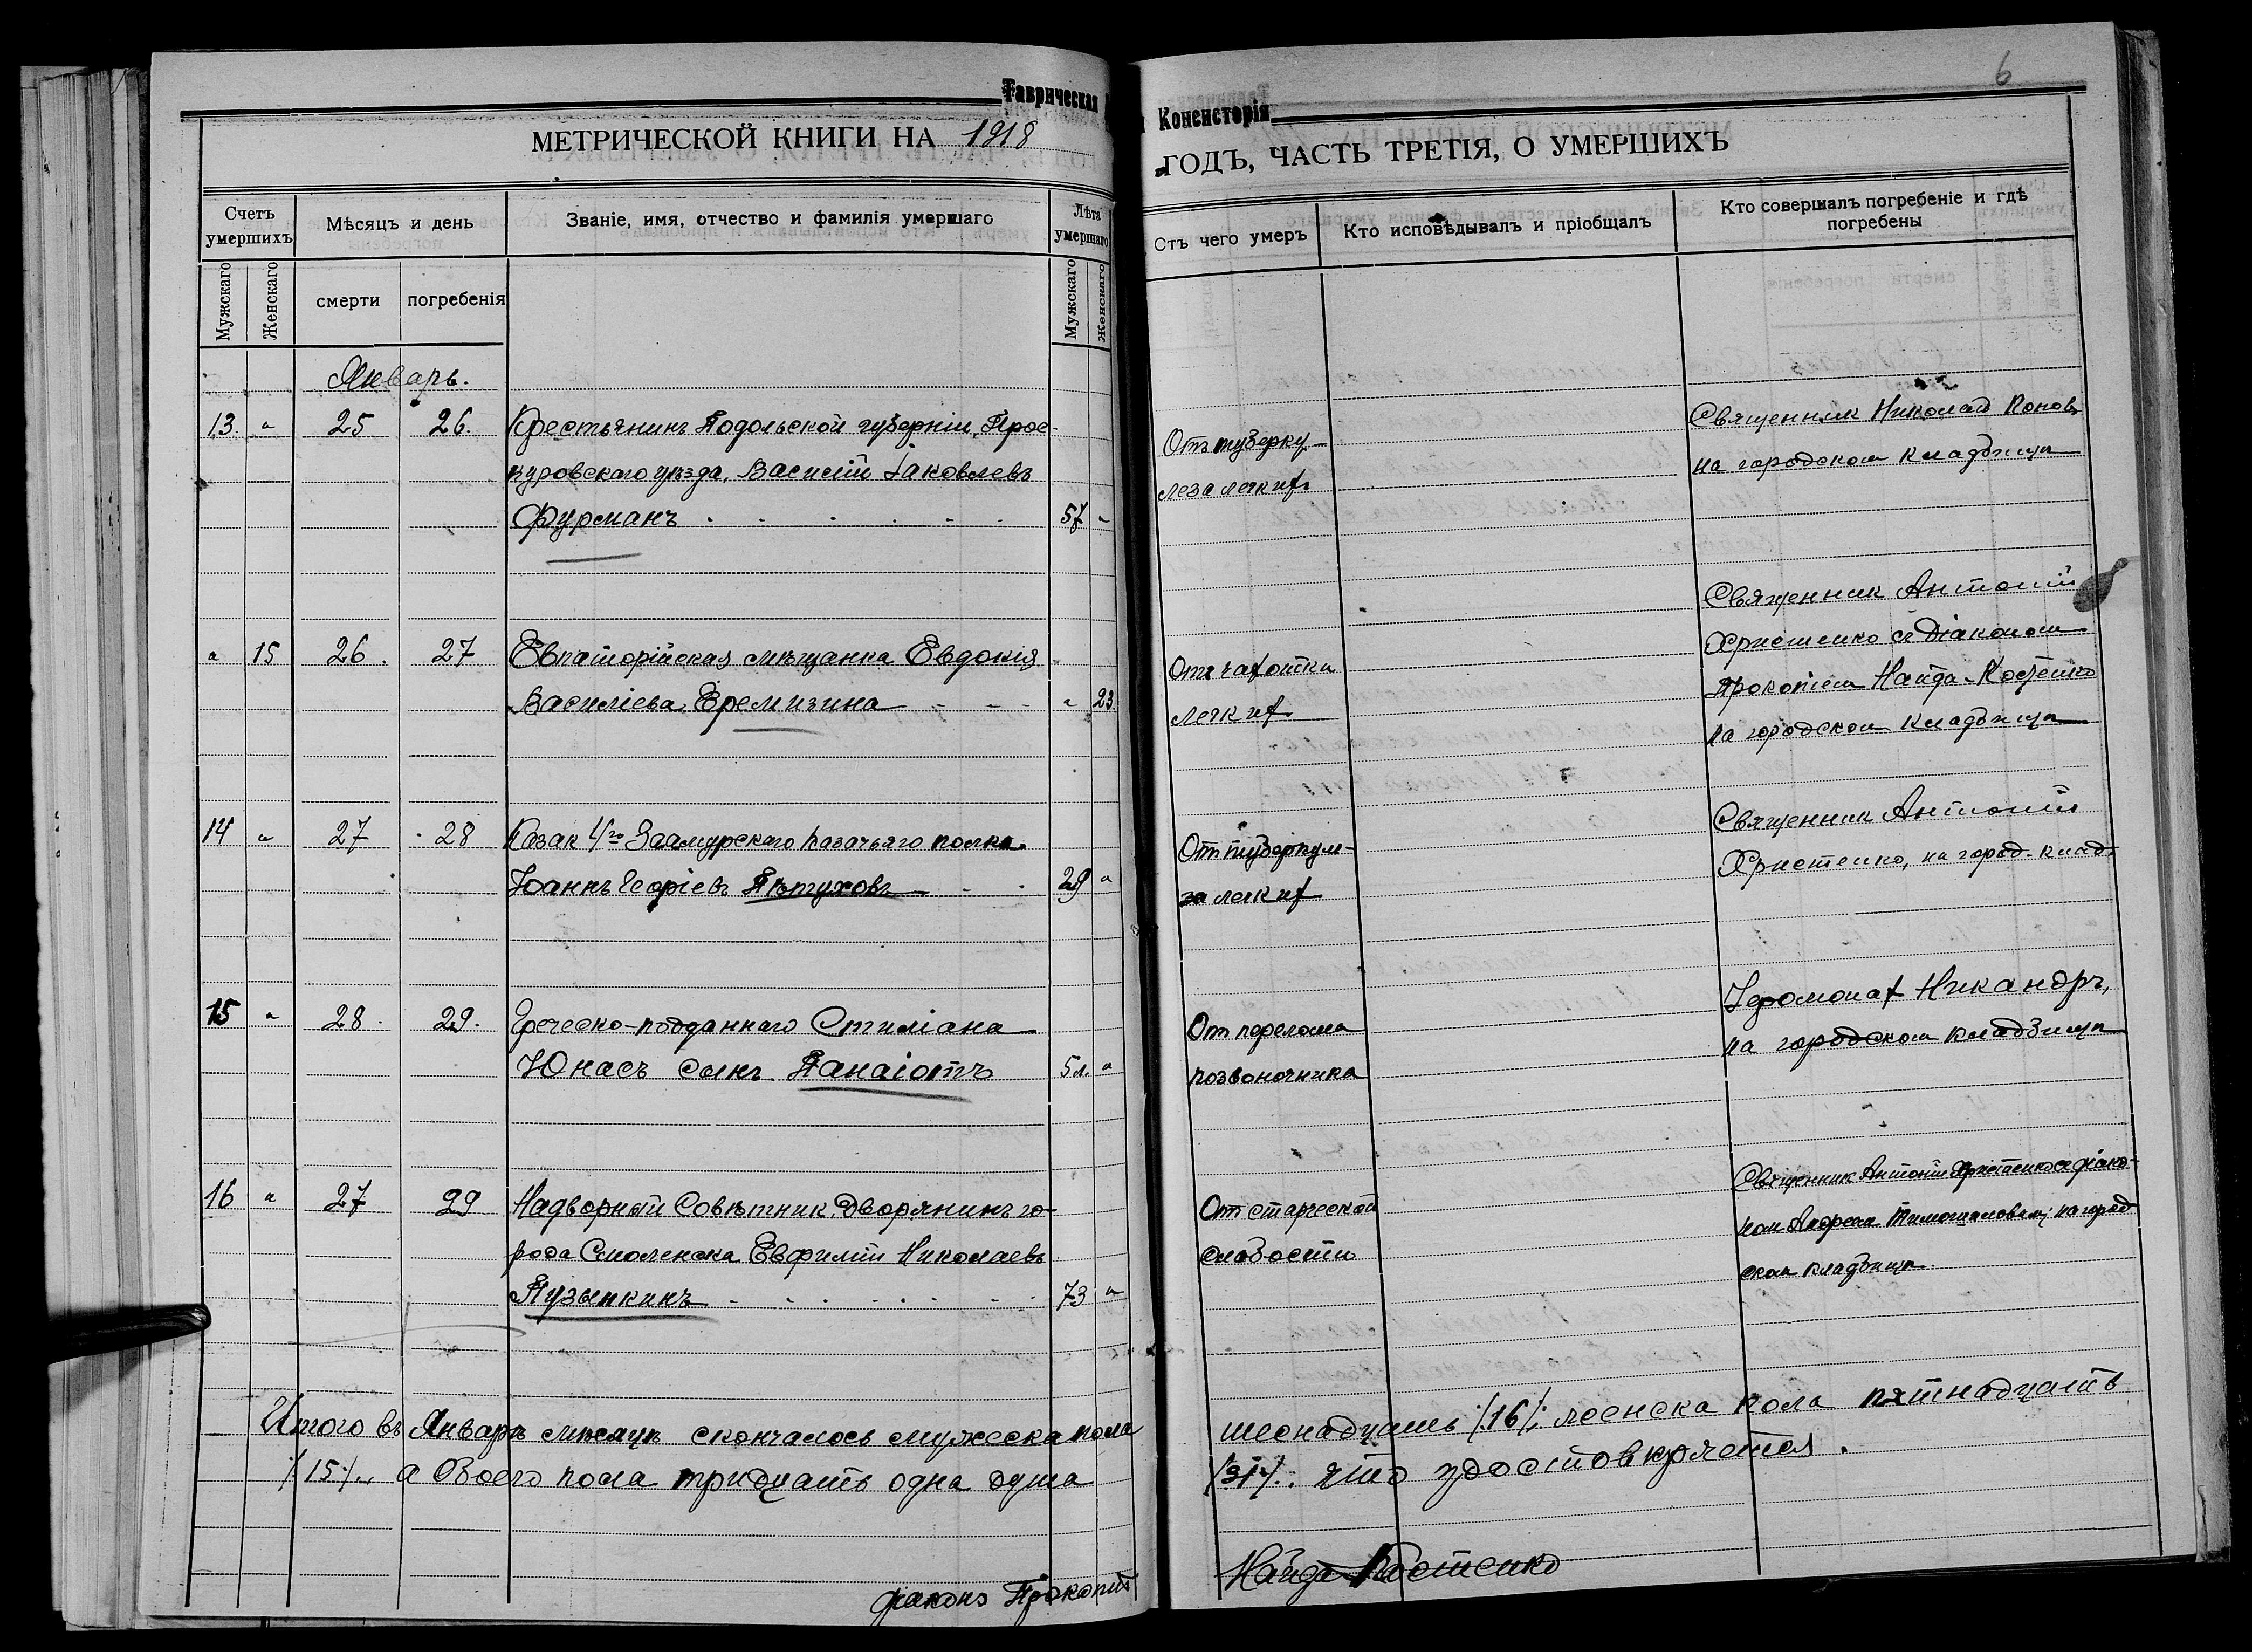 6
Таврическая
Консисторія
МЕТРИЧЕСКОЙ КНИГИ НА 1918
ГОДЪ, ЧАСТЬ ТРЕТІЯ, О УМЕРШИХЪ
Счетъ умершихъ
Мѣсяцъ и день
Званіе, имя, отчество и фамилія умершаго
Лѣта умершаго
Отъ чего умеръ
Кто исповѣдывалъ и пріобщалъ
Кто совершалъ погребеніе и гдѣ погребены
Мужскаго
Женскаго
смерти
погребенія
Мужскаго
Женскаго
Январь.
13. " 25 26. Крестьянинъ Подольской губерніи, Прос-
куровскаго уѣзда, Василій Іаковлевъ
Фурманъ 57 "
Отъ туберку-
леза легкихъ
Священник Николай Попов,
на городском кладбищѣ
" 15 26. 27 Евпаторійская мѣщанка Евдокія
Василіева Еремизина " 23.
От чахотки
легких
Священник Антоній
Христенко съ Діаконом
Прокопіем Найда-Костенко
на городском кладбищѣ
14 " 27 28 Казак 4го Заамурскаго казачьяго полка
Іоаннъ Георгіевъ Пѣтуховъ 29 "
От туберкул-
за легких
Священник Антоній
Христенко, на город. клад.
15 " 28. 29. Греческо-подданнаго Стиліана
Юнасъ сынъ Панаіотъ 5 л. "
От перелома
позвоночника
Іеромонах Никандръ,
на городском кладбищѣ
16 " 27 29 Надворный Совѣтник, дворянинъ го-
рода Смоленска Евфимій Николаевъ
Пузыпкинъ 73 "
От старческой
слабости
Священник Антоній Христенко с діако-
ном Андреем Тимошановым; на город-
ском кладбищѣ.
Итого въ Январѣ мѣсяцѣ скончалось мужеска пола
шеснадцать /16/; женска пола пятнадцать
/15/., а Обоего пола тридцать одна душа
/31/. что удостовѣряется.
діаконъ Прокопій
Найда-Костенко